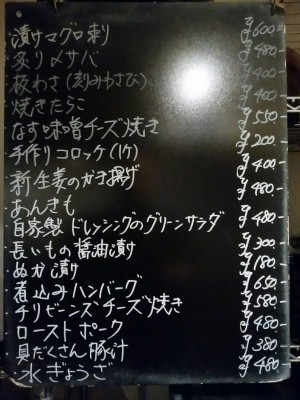 漬けマグロ刺 ¥600
炙り〆サバ ¥480
板わさ(刻みわさび) ¥400
焼きたらこ ¥400
なす味噌チーズ焼き ¥550
手作りコロッケ(1ケ) ¥200
新生姜のかき揚げ ¥400
あんきも ¥480
自家製ドレッシングのグリーンサラダ ¥480
長いもの醤油漬け ¥300
ぬか漬け ¥180
煮込みハンバーグ ¥650
チリビーンズチーズ焼き ¥580
ローストポーク ¥480
具だくさん豚汁 ¥380
水ぎょうざ ¥480